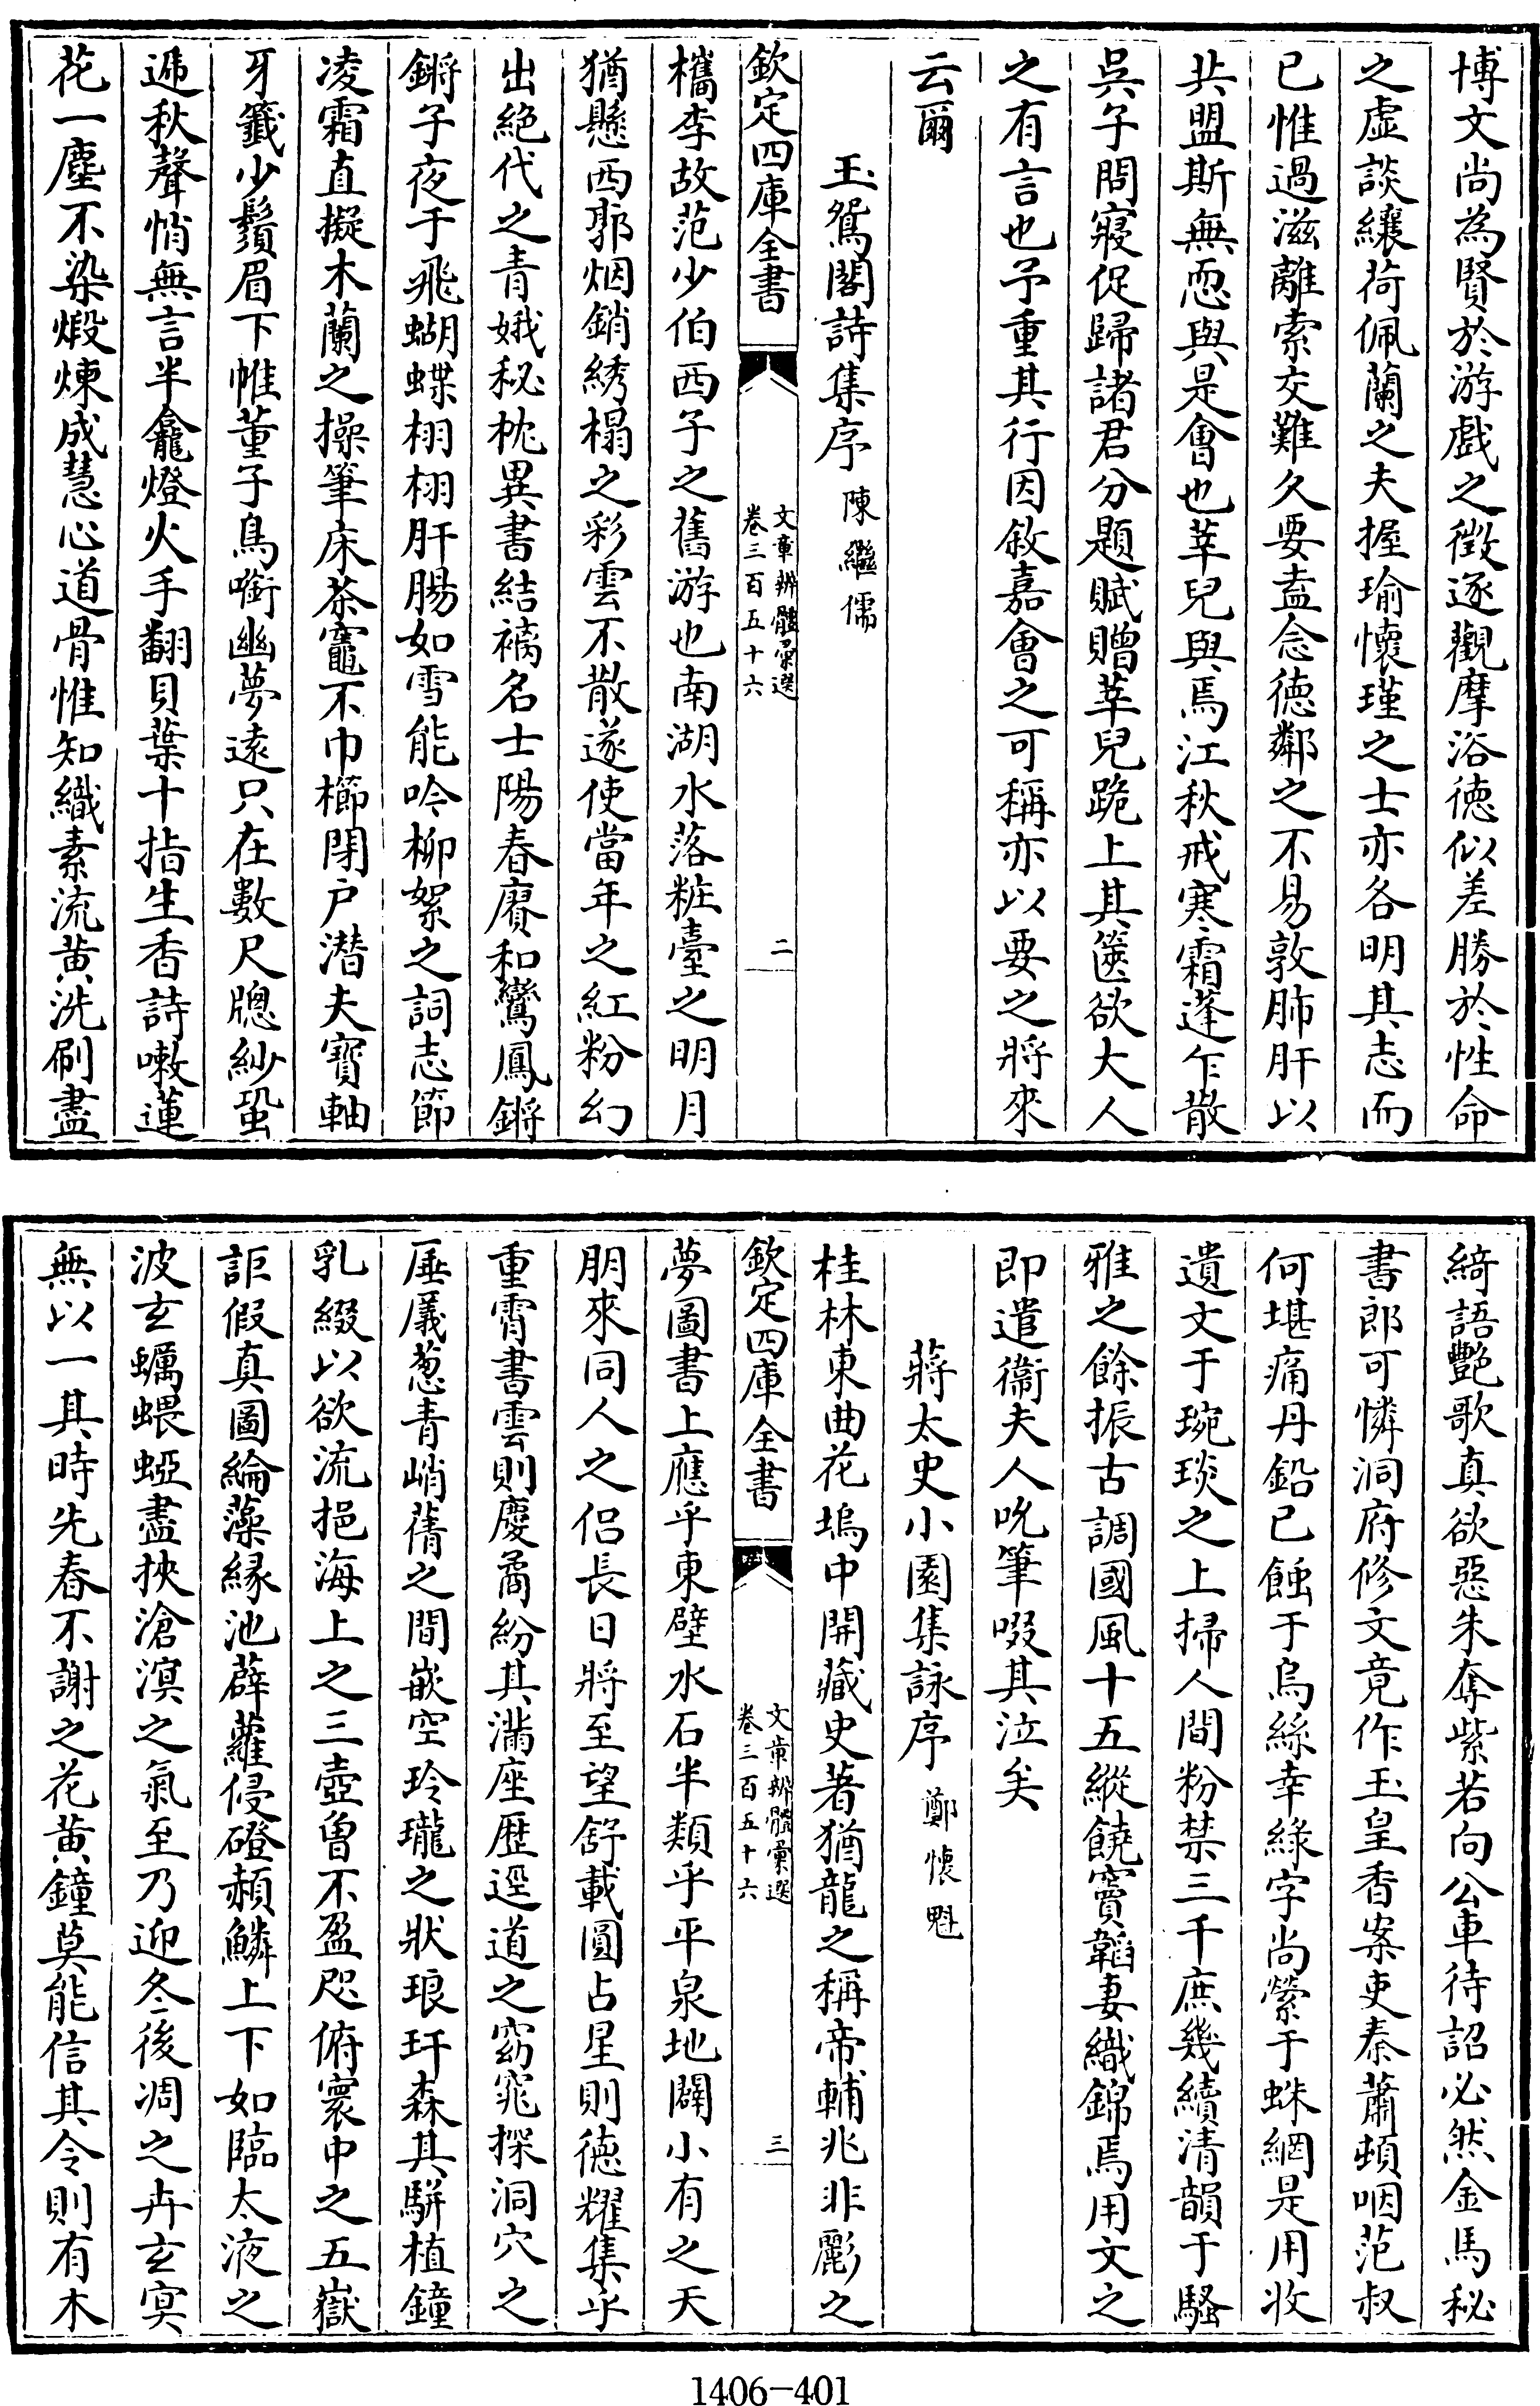 博文尚為賢於游戲之徴逐觀摩浴徳似差勝於性命
之虛談纕荷佩蘭之夫握瑜懷瑾之士亦各明其志而
已惟過滋離索交難久要盍念徳鄰之不易敦肺肝以
共盟斯無恧與是會也莘兒與焉江秋戒寒霜蓬乍散
吳子問寢促歸諸君分題賦贈莘兒跪上其篋欲大人
之有言也予重其行因敘嘉會之可稱亦以要之將來
云爾
玉鴛閣詩集序 陳繼儒
欽定四庫全書
文章辨體彙選
卷三百五十六
二
檇李故范少伯西子之舊游也南湖水落粧臺之明月
猶懸西郭烟銷綉榻之彩雲不散遂使當年之紅粉幻
出絶代之青娥秘枕異書結褵名士陽春賡和鸞鳳鏘
鏘子夜于飛蝴蝶栩栩肝腸如雪能吟柳絮之詞志節
凌霜直擬木蘭之操筆床茶竈不巾櫛閉戸潛夫寶軸
牙籤少鬚眉下帷董子鳥啣幽夢逺只在數尺牕紗蛩
遞秋聲悄無言半龕燈火手翻貝葉十指生香詩嗽蓮
花一塵不染煅煉成慧心道骨惟知織素流黄洗刷盡
綺語艷歌真欲惡朱奪紫若向公車待詔必然金馬秘
書郎可憐洞府修文竟作玉皇香案吏秦蕭頓咽范叔
何堪痛丹鉛已蝕于烏絲幸緑字尚縈于蛛網是用收
遺文于琬琰之上掃人間粉禁三千庶幾續清韻于騷
雅之餘振古調國風十五縱饒竇韜妻織錦焉用文之
即遣衞夫人吮筆啜其泣矣
蔣太史小園集詠序 鄭懷魁
桂林東曲花塢中開藏史著猶龍之稱帝輔兆非彲之
欽定四庫全書
文章辨體彙選
卷三百五十六
三
夢圖書上應乎東壁水石半類乎平泉地闢小有之天
朋來同人之侣長日將至望舒載圓占星則徳耀集乎
重霄書雲則慶矞紛其滿座歴逕道之窈窕探洞穴之
厜㕒葱青峭蒨之間嵌空玲瓏之狀琅玕森其駢植鐘
乳綴以欲流挹海上之三壺曽不盈咫俯寰中之五嶽
詎假真圖綸藻縁池薜蘿侵磴頳鱗上下如臨太液之
波玄蠣蝘蜓盡挾滄溟之氣至乃迎冬後凋之卉玄冥
無以一其時先春不謝之花黄鐘莫能信其令則有木
1406-401